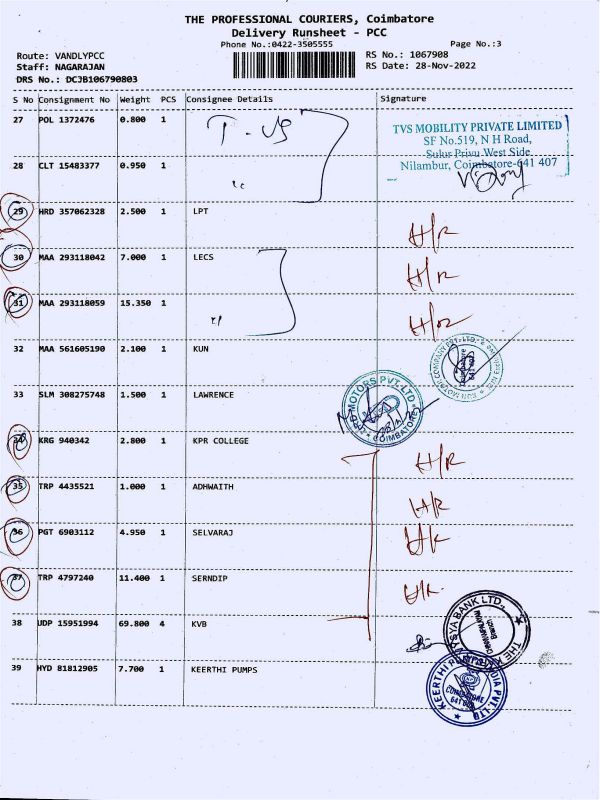 THE PROFESSIONAL COURIERS, Coimbatore
Delivery Runsheet - PCC
Phone No.:0422-3505555
Page No.:3
Route: VANDLYPCC
RS No.: 1067908
Staff: NAGARAJAN
RS Date: 28-Nov-2022
DRS No.: DCJB106790803
S No Consignment No Weight PCS Consignee Details Signature
27 POL 1372476 0.800 1 T-VS
TVS MOBILITY PRIVATE LIMITED
SF No.519, N H Road,
Sulur Privu West Side
Nilambur, Coimbatore-641 407
28 CLT 15483377 0.950 1 "
29 HRD 357062328 2.500 1 LPT H/R
30 MAA 293118042 7.000 1 LECS H/R
31 MAA 293118059 15.350 1 " H/R
32 MAA 561605190 2.100 1 KUN
33 SLM 308275748 1.500 1 LAWRENCE
MOTORS PVT.LTD.
COIMBATORE
34 KRG 940342 2.800 1 KPR COLLEGE H/R
35 TRP 4435521 1.000 1 ADHWAITH H/R
36 PGT 6903112 4.950 1 SELVARAJ H/R
37 TRP 4797240 11.400 1 SERNDIP H/R
38 UDP 15951994 69.800 4 KVB
VYSYA BANK LTD.
Branch
39 HYD 81812905 7.700 1 KEERTHI PUMPS
KEERTHI PUMPS INDIA PVT. LTD
COIMBATORE